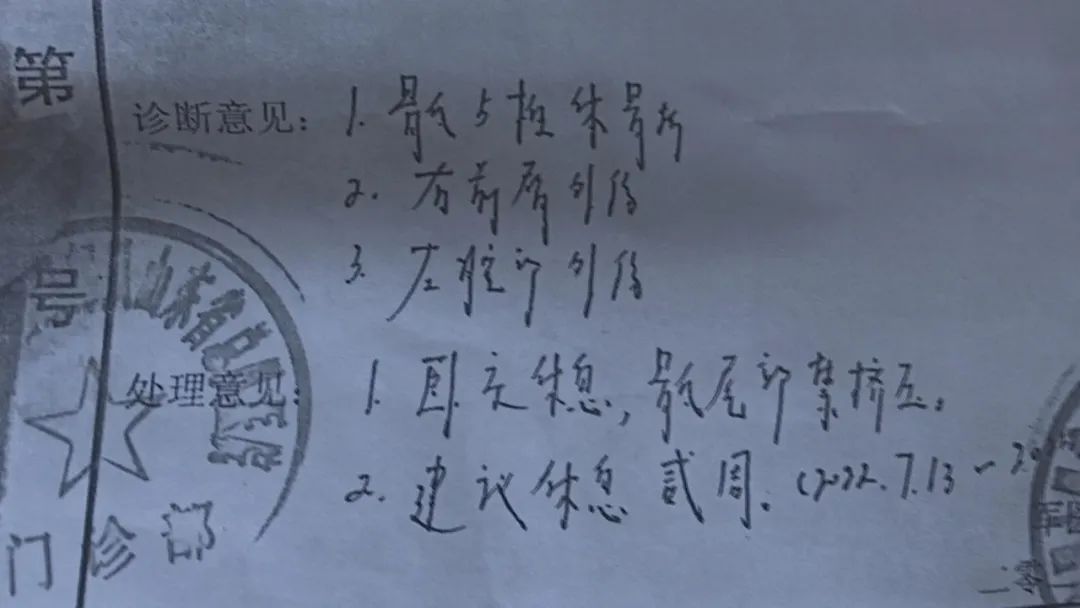 第
诊断意见: 1. 骶5椎体骨折
2. 右前臂外伤
3. 左腔部外伤
号
山东省
处理意见: 1. 卧床休息，骶尾部禁挤压。
2. 建议休息贰周。(2022.7.13~20
门诊部